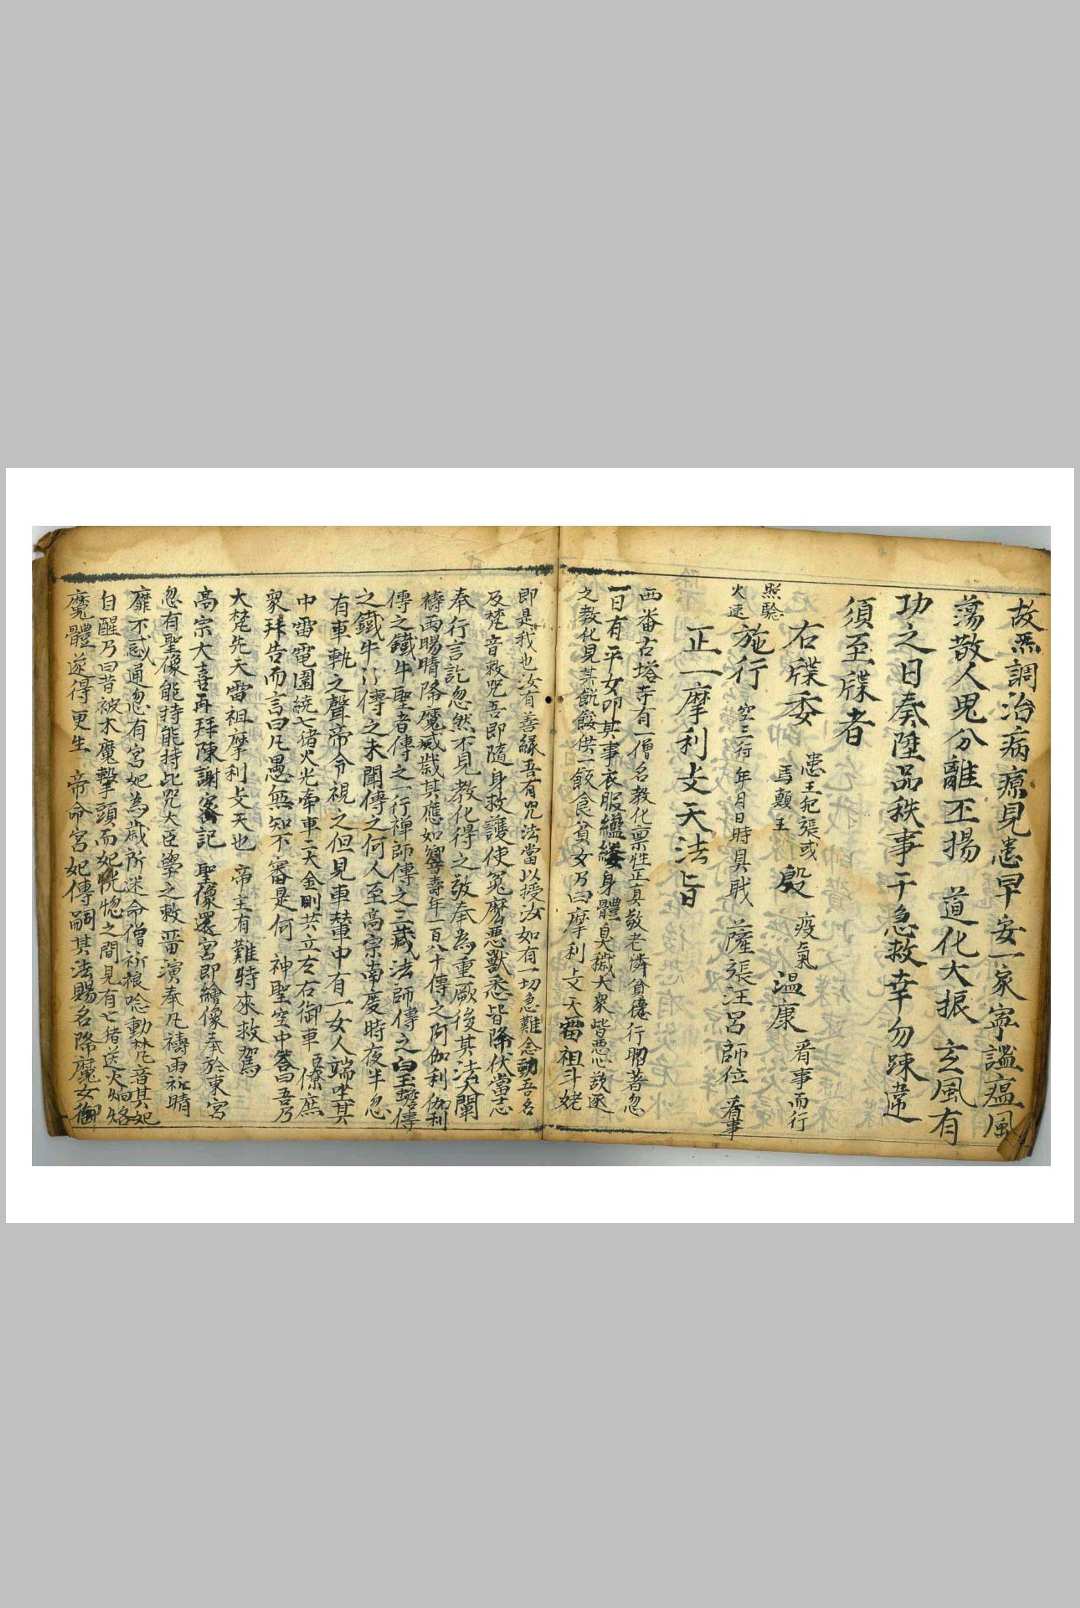 故炁調治病痊見患早安一家寧謐瘟風
蕩散人鬼分離丕揚　道化大振　玄風有
功之日奏陞品秩事干急救幸勿踈違
須至牒者
右牒委
患王祀張或
馬顛王
殷
疫氣
温康
看事而行
照驗
火速
施行
空三行年月日時具戝
薩張汪呂師位
看事
正一摩利攴天法旨
西番古塔寺有一僧名教化禀性正真敬老憐貧德行昭著忽
一日有平女叩其事衣服繿縷身體臭穢大衆皆惡心設逐
之教化見某飢餒供一飯食貧女乃曰摩利攴天雷祖斗姥
即是我也汝有善緣吾有咒法當以授汝如有一切急難念動吾名
及梵音救咒吾即隨身救護使冤魔惡獸悉皆降伏當志
奉行言訖忽然不見教化得之敬奉為重厥後其法闡
禱雨賜晴降魔滅崇其應如響壽年一百八十傳之阿伽利伽利
傳之鐵牛聖者傳之一行禅師傳之三蔵法師傳之白玉蟾傳
之鐵牛〻傳之未聞傳之何人至高宗南度時夜半忽
有車軌之聲帝令視之但見車輦中有一女人端坐其
中雷電圍繞七猪火光牽車二天金剛共立左右御車　臣僚庶
衆拜告而言曰凡愚無知不審是何　神聖空中答曰吾乃
大梵先天雷祖摩利攴天也　帝主有難特來救駕
高宗大喜再拜陳謝密記　聖像還宮即繪像奉於東宮
忽有聖像能持能持此咒大臣學之救畨演奉凡禱雨祈晴
靡不感通忽有宮妃為崇所迷命僧祈粮唸動梵音其妃
自醒乃曰昔被木魔擊頭而妃恍惚之間見有七猪送火焰烙
魔體遂得更生　帝命宮妃傳嗣其法賜名降魔女御